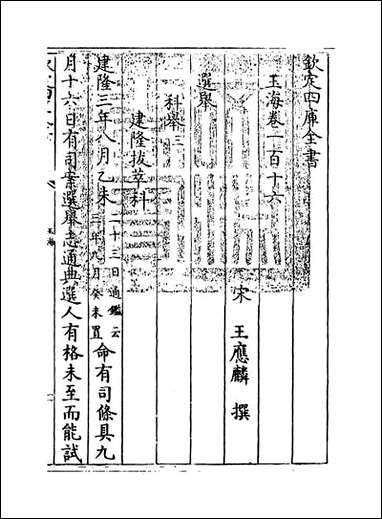 欽定四庫全書
玉海卷一百十六
宋 王應麟 撰
選舉
科舉三
建隆拔萃科
建隆三年八月乙未二十三日通鑑云三年九月癸未置命有司條具九
月十六日有司案選舉志通典選人有格未至而能試